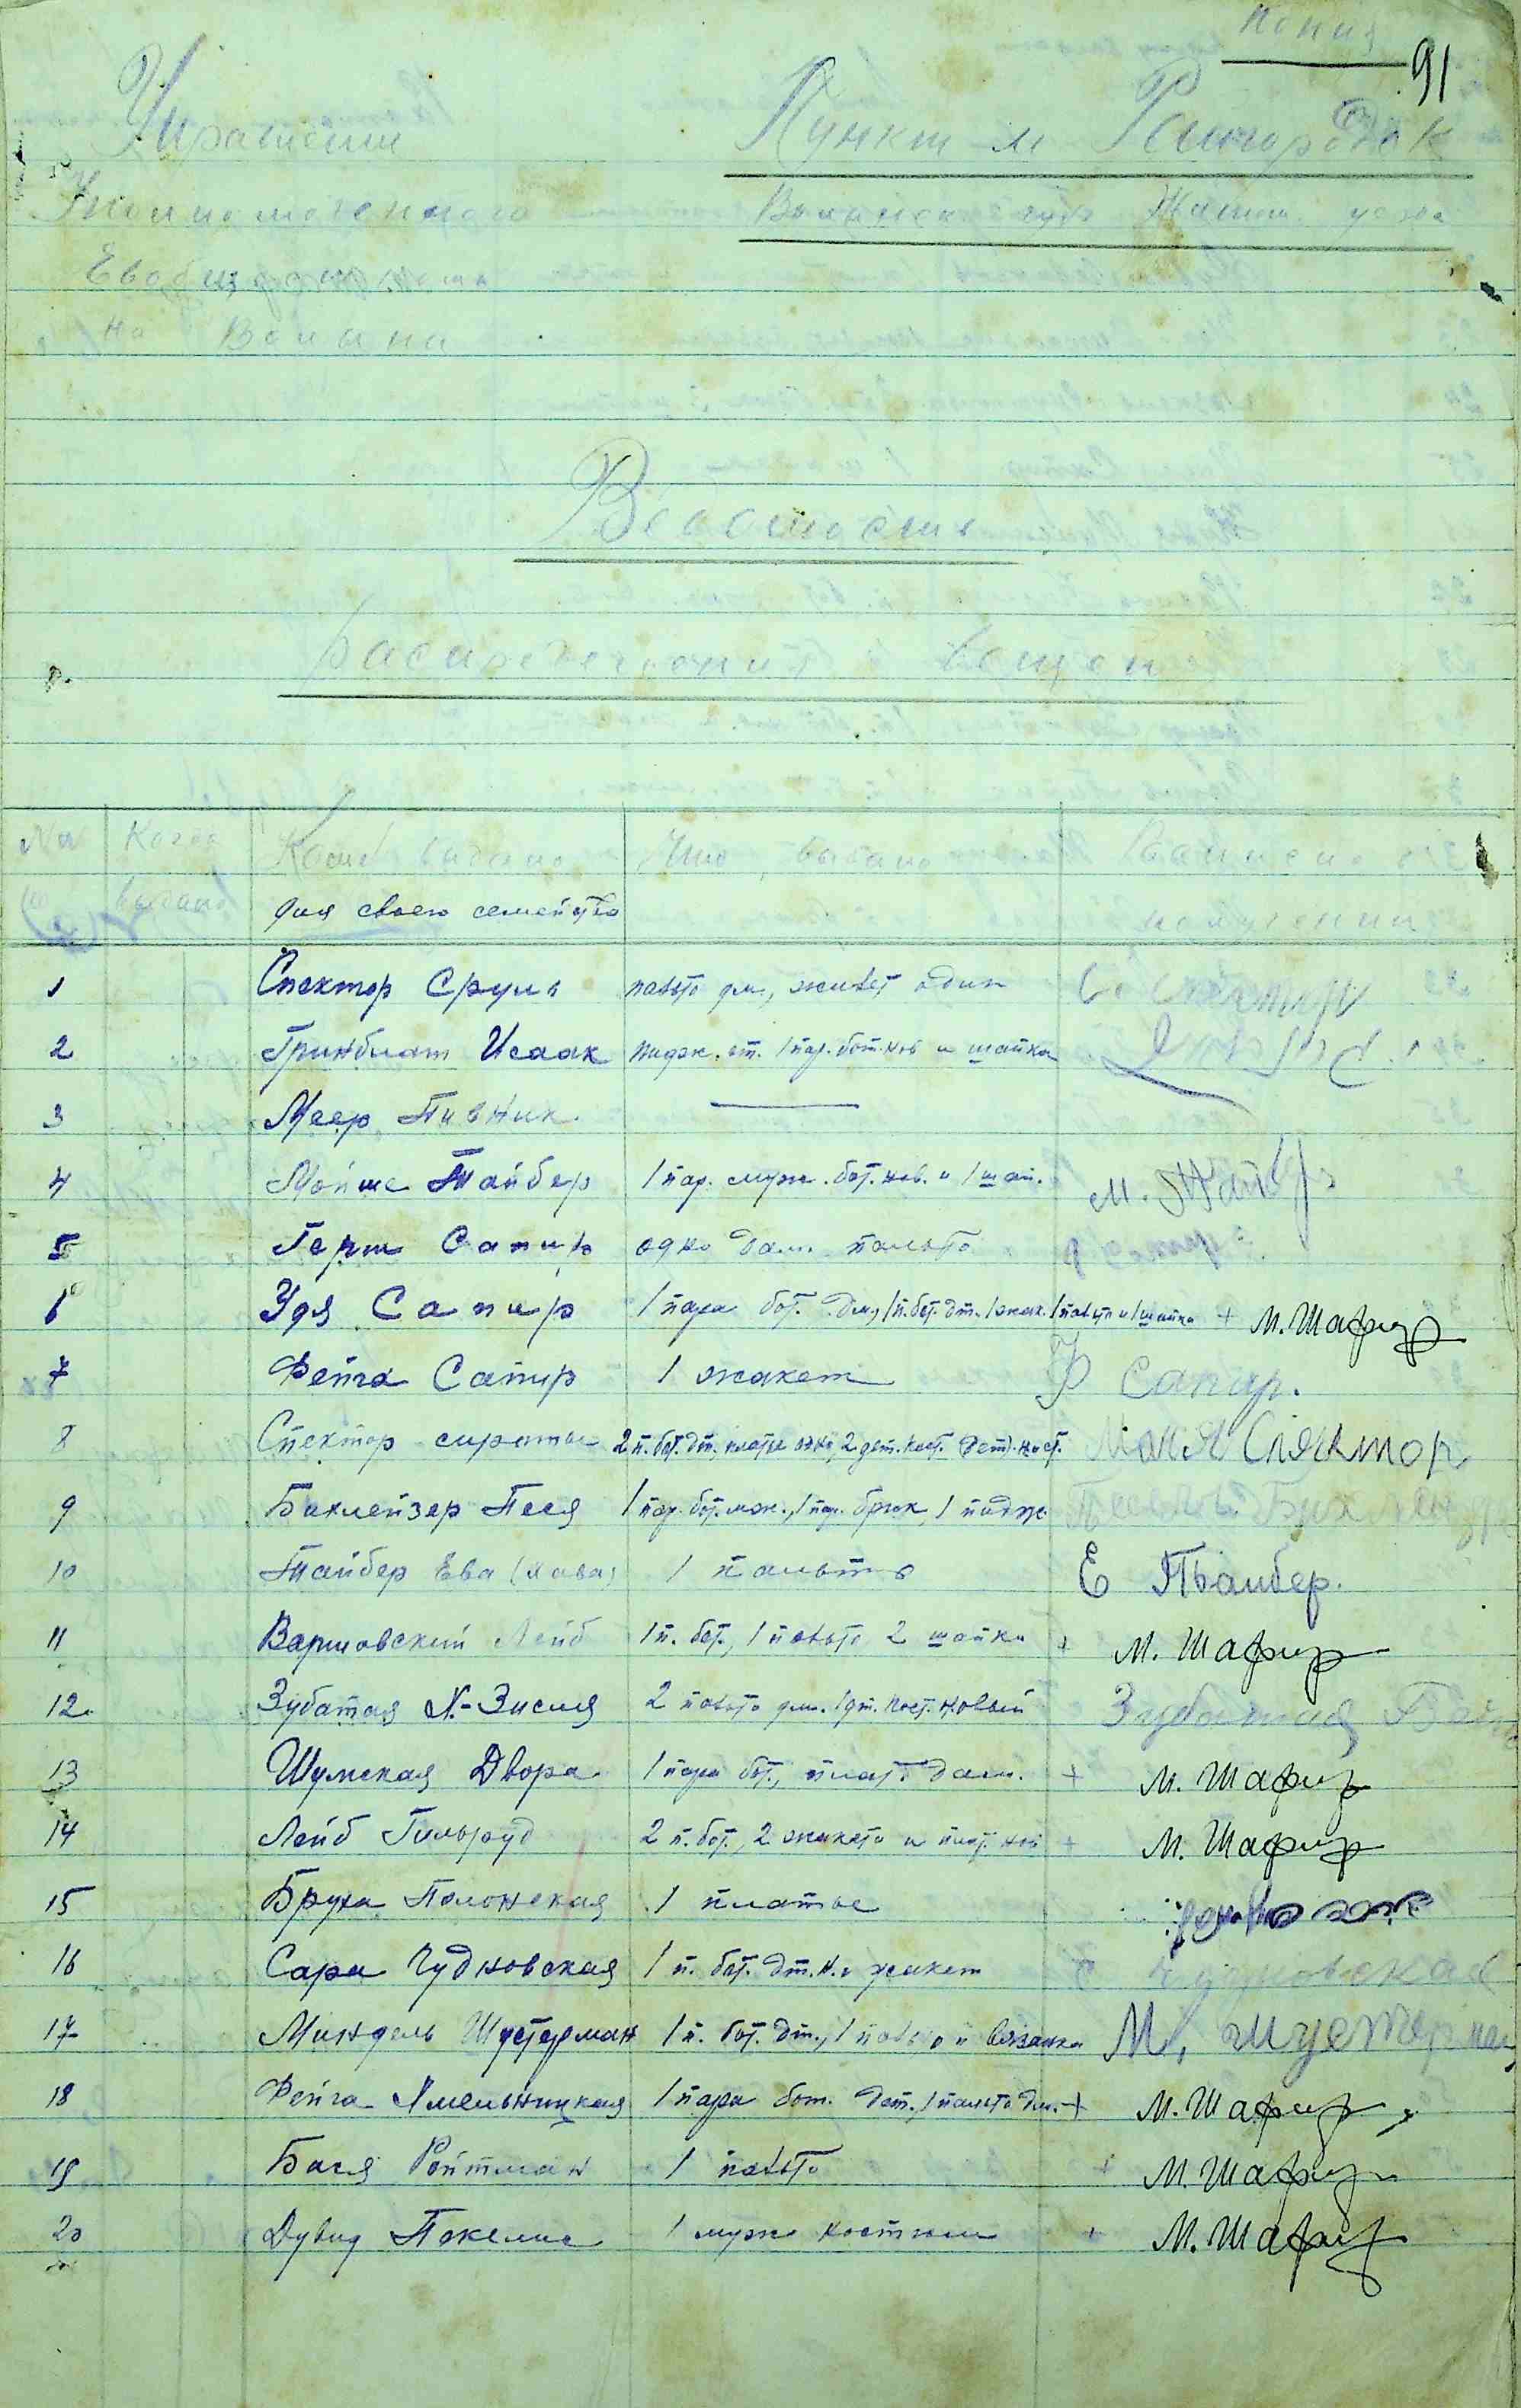 копия
91
Управление
Пункт м. Райгородок
Уполномоченного
Волынск губ Жит. уезда
Евобщесткома
на Волыни
Ведомость
распределения вещей
№№ Когда Кому выдано Что выдано Расписка в
по выдано для своего семейства получении
1 Спектор Сруль пальто дм., живет один С. Спектор
2 Гринблат Исаак пидж. вт. 1 пар. бот. нов и шапка
3 Меер Пивник —
4 Мойше Тайбер 1 пар. муж. бот. нов. и 1 шап. М. Тайбер
5 Герш Сапир одно дам. пальто
6 Удя Сапир 1 пара бот. дм., 1 п. бот. дт. 1 жак. 1 пальто и 1 шапка + М. Шафир
7 Фейга Сапир 1 жакет Ф Сапир.
8 Спектор сироты 2 п. бот. дт. платье одно, 2 дет. кост. Маня Спектор
9 Баклейзер Песя 1 пар. бот. мж., 1 пар. брюк, 1 пидж.
10 Тайбер Ева (Хава) 1 пальто Е Тьайбер.
11 Варшовский Лейб 1 п. бот., 1 пальто 2 шапки + М. Шафир
12. Зубатая Х.-Зисля 2 пальто дм. 1 дт. кост. новый Зубатая
13 Шумская Двора 1 пара бот., плат. дам. + М. Шафир
14 Лейб Гильруд 2 п. бот., 2 жакета и плат. нов + М. Шафир
15 Бруха Полонская 1 платье
16 Сара Чудновская 1 п. бот. дт. н. и жакет С Чудновская
17 Миндель Шустерман 1 п. бот. дт., 1 пальто и вязанка М, шустерман
18 Фейга Хмельницкая 1 пара бот. дет. 1 пальто дм. + М. Шафир
19 Бася Ройтман 1 пальто + М. Шафир
20 Дувид Пекелис 1 муж. костюм + М. Шафир